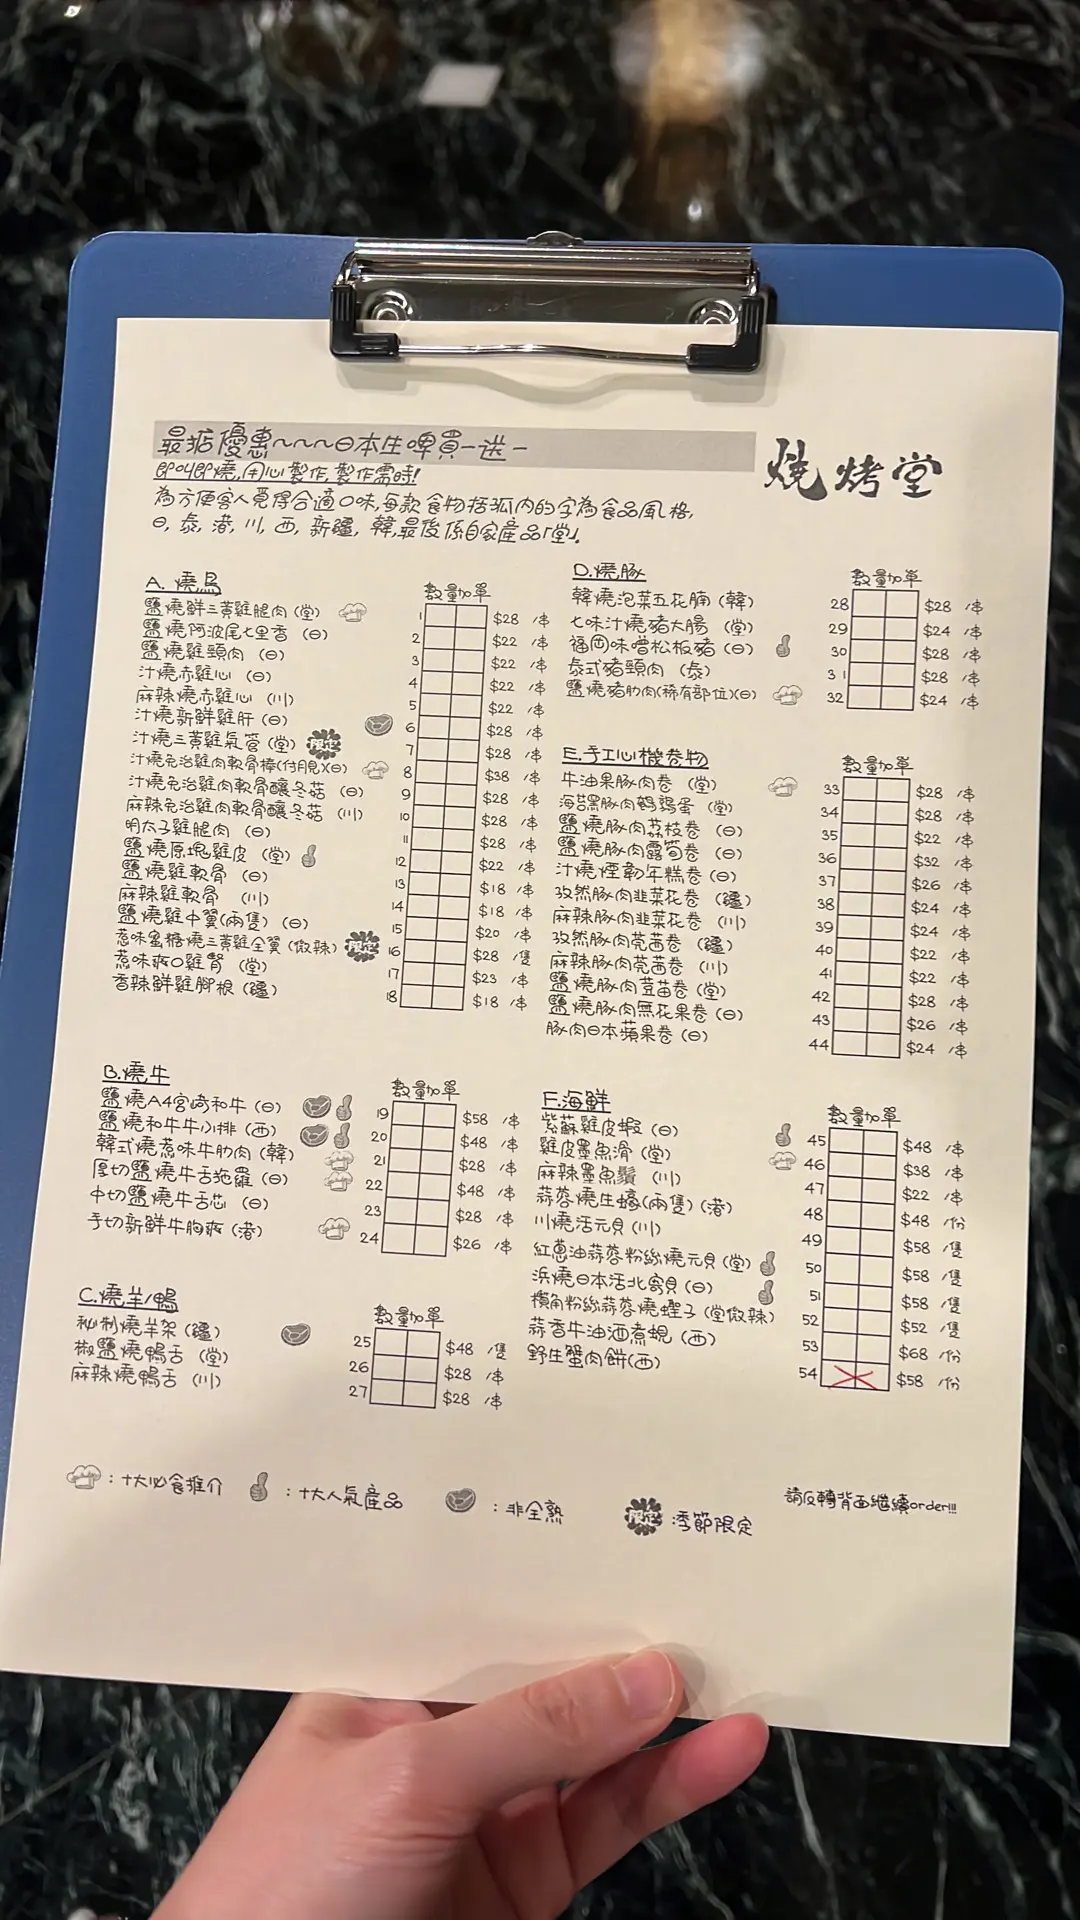 最掂優惠~~~日本生啤買一送一
燒烤堂
即叫即燒,用心製作,製作需時!
為方便客人覓得合適口味,每款食物括弧內的字為食品風格,
日, 泰, 港, 川, 西, 新疆, 韓,最後係自家產品「堂」。
A. 燒鳥 數量加單
鹽燒鮮三黃雞腿肉(堂) 1 $28 /串
鹽燒阿波尾七里香 (日) 2 $22 /串
鹽燒雞頸肉 (日) 3 $22 /串
汁燒赤雞心 (日) 4 $22 /串
麻辣燒赤雞心 (川) 5 $22 /串
汁燒新鮮雞肝 (日) 6 $28 /串
汁燒三黃雞氣管 (堂) 限定 7 $28 /串
汁燒免治雞肉軟骨棒(付月見)(日) 8 $38 /串
汁燒免治雞肉軟骨釀冬菇 (日) 9 $28 /串
麻辣免治雞肉軟骨釀冬菇 (川) 10 $28 /串
明太子雞腿肉 (日) 11 $28 /串
鹽燒原塊雞皮 (堂) 12 $22 /串
鹽燒雞軟骨 (日) 13 $18 /串
麻辣雞軟骨 (川) 14 $18 /串
鹽燒雞中翼(兩隻) (日) 15 $20 /串
惹味蜜糖燒三黃雞全翼 (微辣) 限定 16 $28 /隻
惹味爽口雞腎 (堂) 17 $23 /串
香辣鮮雞腳根 (疆) 18 $18 /串
B.燒牛 數量加單
鹽燒A4宮崎和牛 (日) 19 $58 /串
鹽燒和牛牛小排 (西) 20 $48 /串
韓式燒惹味牛肋肉 (韓) 21 $28 /串
厚切鹽燒牛舌拖羅 (日) 22 $48 /串
中切鹽燒牛舌芯 (日) 23 $28 /串
手切新鮮牛胸爽 (港) 24 $26 /串
C.燒羊/鴨 數量加單
秘制燒羊架 (疆) 25 $48 /隻
椒鹽燒鴨舌 (堂) 26 $28 /串
麻辣燒鴨舌 (川) 27 $28 /串
D.燒豚 數量加單
韓燒泡菜五花腩 (韓) 28 $28 /串
七味汁燒豬大腸 (堂) 29 $24 /串
福岡味噌松板豬 (日) 30 $28 /串
泰式豬頸肉 (泰) 31 $28 /串
鹽燒豬肋肉(稀有部位)(日) 32 $24 /串
E.手工心機卷物 數量加單
牛油果豚肉卷 (堂) 33 $28 /串
海苔黑豚肉鵪鶉蛋 (堂) 34 $28 /串
鹽燒豚肉荔枝卷 (日) 35 $22 /串
鹽燒豚肉露筍卷 (日) 36 $32 /串
汁燒煙韌年糕卷 (日) 37 $26 /串
孜然豚肉韭菜花卷 (疆) 38 $24 /串
麻辣豚肉韭菜花卷 (川) 39 $24 /串
孜然豚肉芫茜卷 (疆) 40 $22 /串
麻辣豚肉芫茜卷 (川) 41 $22 /串
鹽燒豚肉荳苗卷 (堂) 42 $28 /串
鹽燒豚肉無花果卷 (日) 43 $26 /串
豚肉日本蘋果卷 (日) 44 $24 /串
F.海鮮 數量加單
紫蘇雞皮蝦 (日) 45 $48 /串
雞皮墨魚滑 (堂) 46 $38 /串
麻辣墨魚鬚 (川) 47 $22 /串
蒜蓉燒生蠔(兩隻) (港) 48 $48 /份
川燒活元貝 (川) 49 $58 /隻
紅蔥油蒜蓉粉絲燒元貝 (堂) 50 $58 /隻
浜燒日本活北寄貝 (日) 51 $58 /隻
欖角粉絲蒜蓉燒蟶子 (堂微辣) 52 $52 /隻
蒜香牛油酒煮蜆 (西) 53 $68 /份
野生蟹肉餅(西) 54 $58 /份
:十大必食推介
:十大人氣產品
:非全熟
限定 :季節限定
請反轉背面繼續order!!!